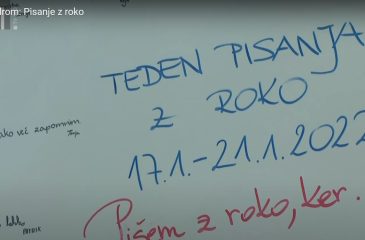 drom: Pisanje z roko
TEDEN PISANJA
Z ROKO
ako več zapomnim.
17.1.-21.1.2022
Pišem z roko, ker.